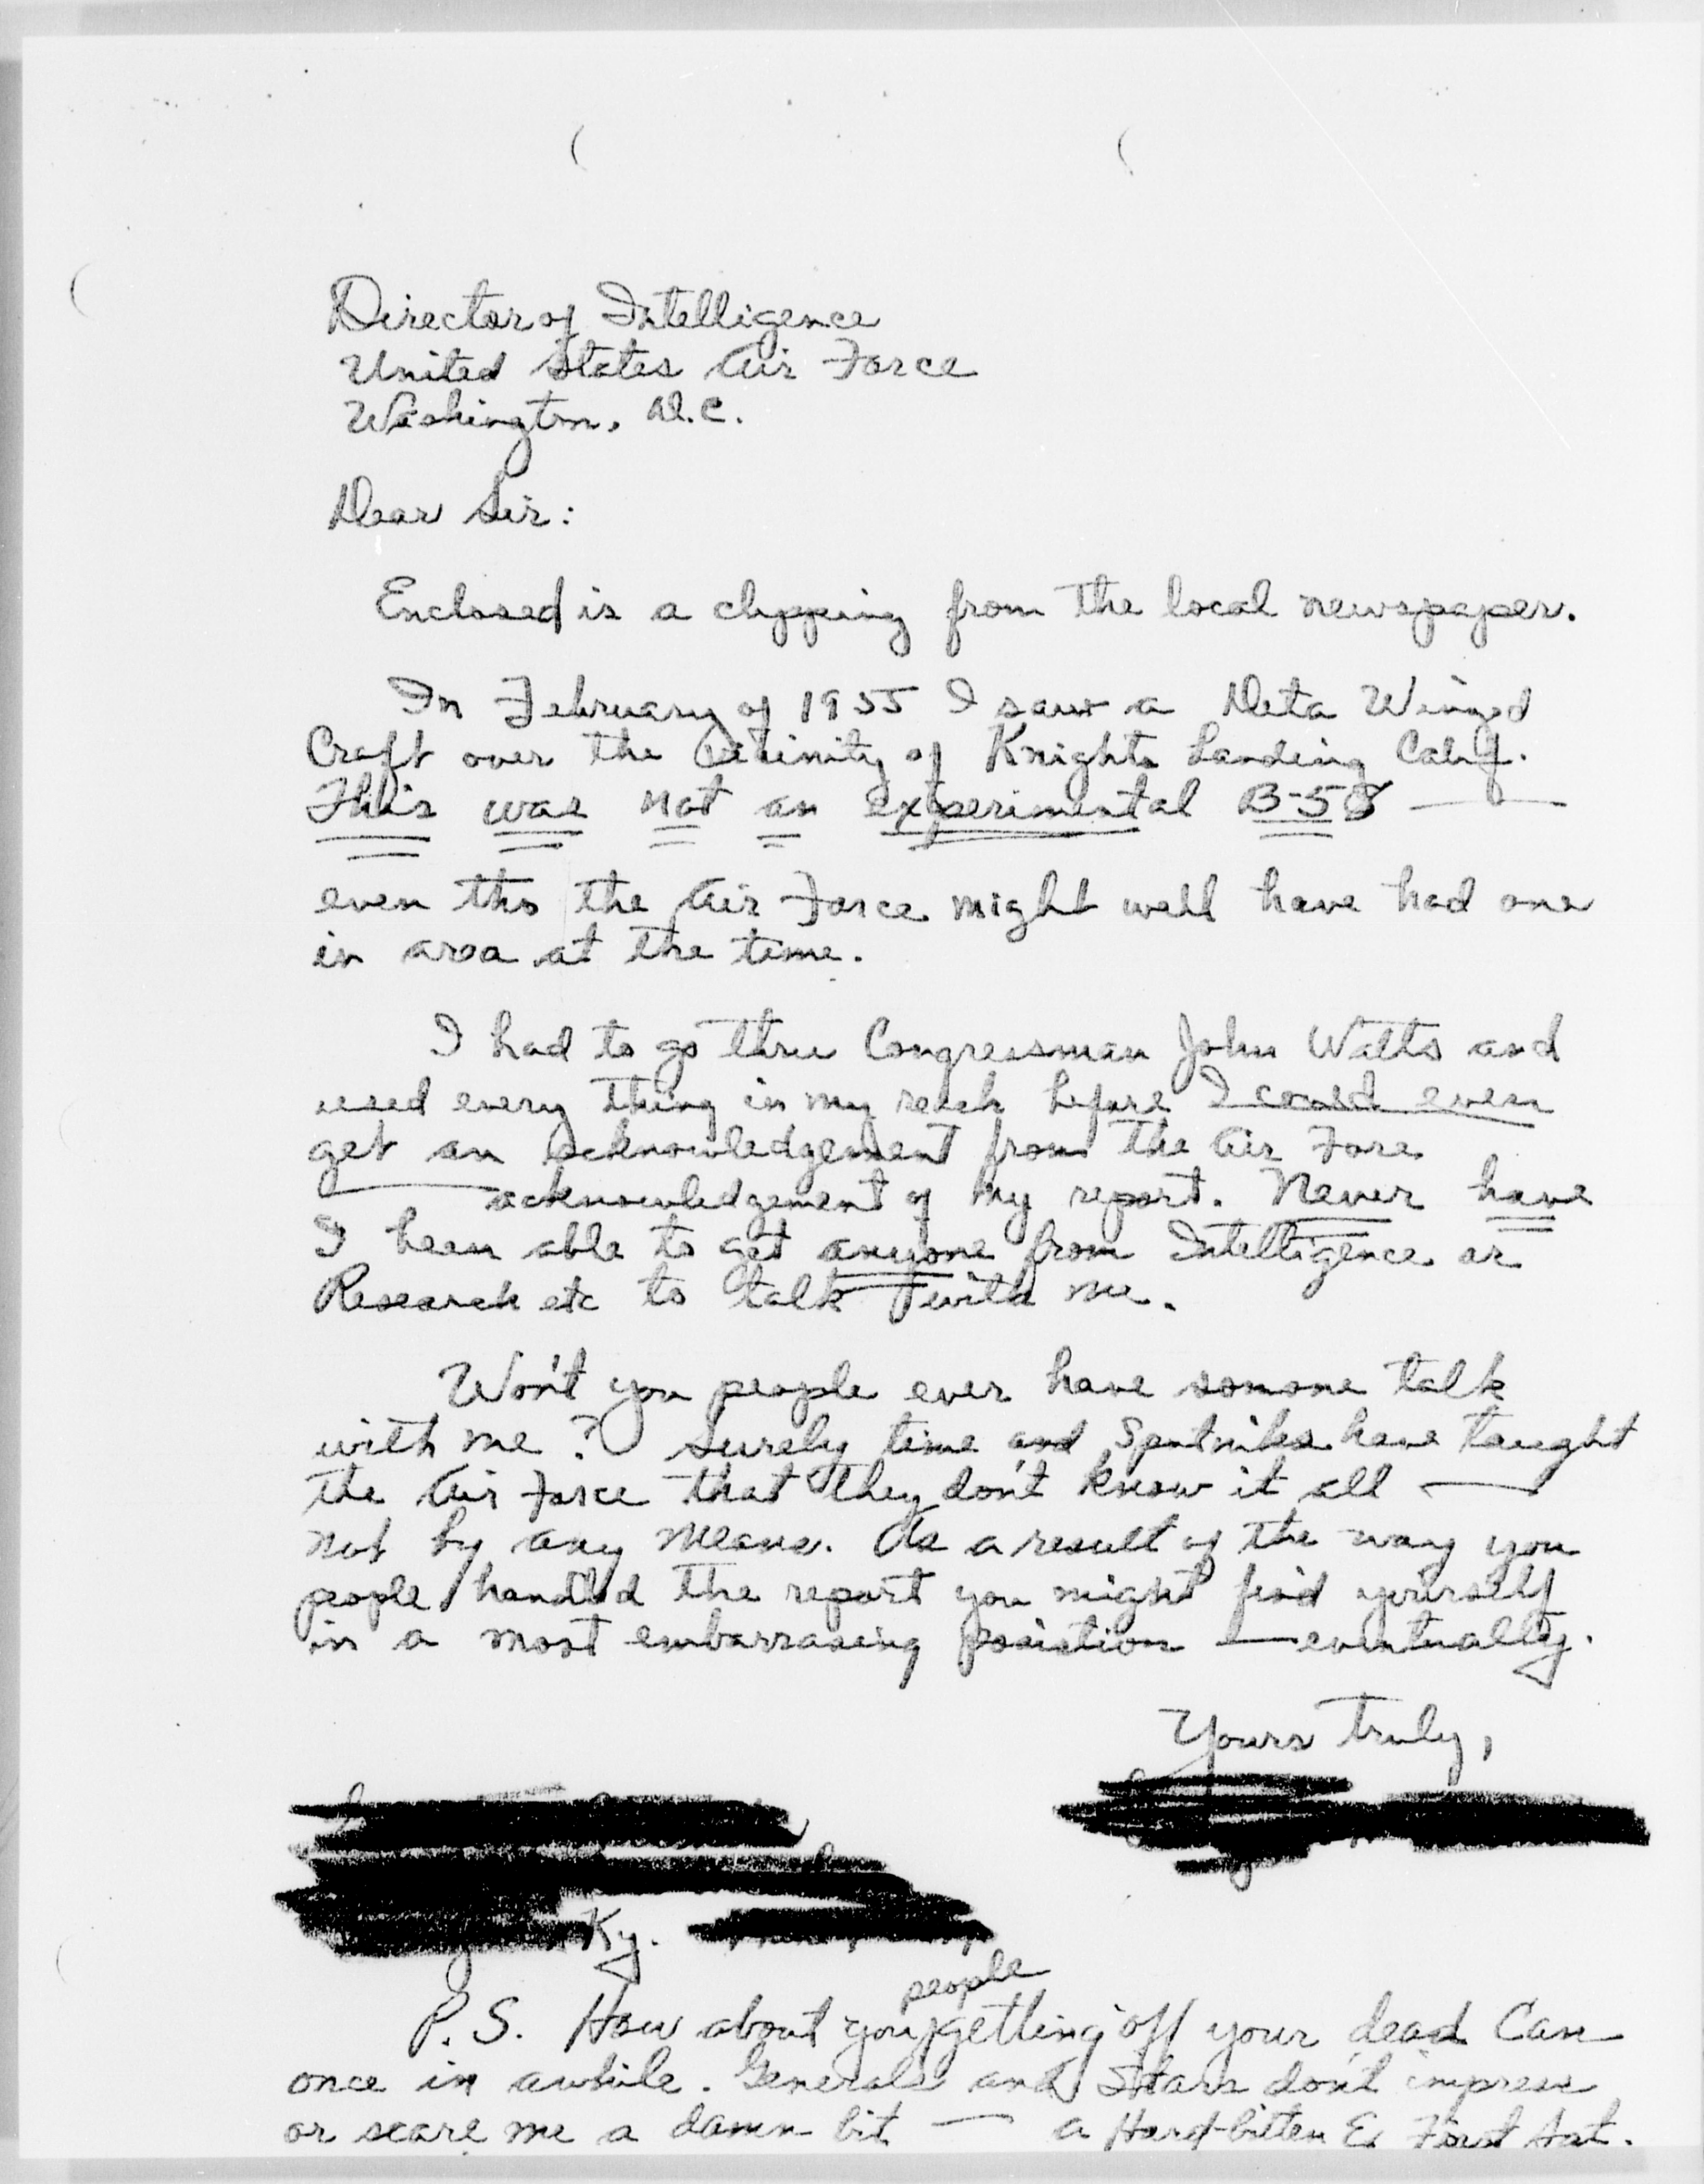 Director of Intelligence
United States Air Force
Washington, D.C.
Dear Sir:
Enclosed is a clipping from the local newspaper.
In February of 1955 I saw a Delta Winged
Craft over the vicinity of Knights Landing Calif.
This was not an experimental B-58 —
even tho the Air Force might well have had one
in area at the time.
I had to go thru Congressman John Watts and
used every thing in my reach before I could even
get an acknowledgement from the Air Fore
— acknowledgement of my report. Never have
I been able to get anyone from Intelligence or
Research etc to talk with me.
Won't you people ever have somone talk
with me? Surely time and Sputniks have taught
the Air Force that they don't know it all —
not by any means. As a result of the way you
people handled the report you might find yourself
in a most embarrasing position — eventually.
Yours truly,
Ky.
people
P.S. How about you getting off your dead Can
once in awhile. Generals and Stars don't impress
or scare me a damn bit — a Hard-bitten Ex First Sgt.